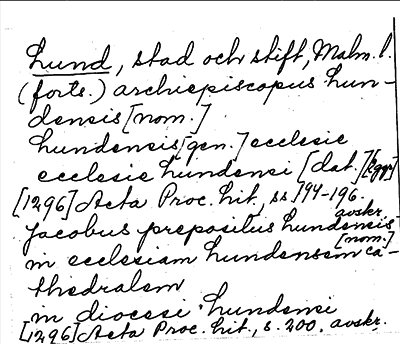 Lund, stad och stift, Malm. l.
(forts.) archiepiscopus Lun-
densis [nom.]
Lundensis [gen.] ecclesie
ecclesie Lundensi [dat.]
[1296] Acta Proc. lit., ss. 194-196.
avskr.
Jacobus prepositus Lundensis
[nom.]
in ecclesiam Lundensem ca-
thedralem
in diocesi Lundensi
[1296] Acta Proc. lit., s. 200. avskr.